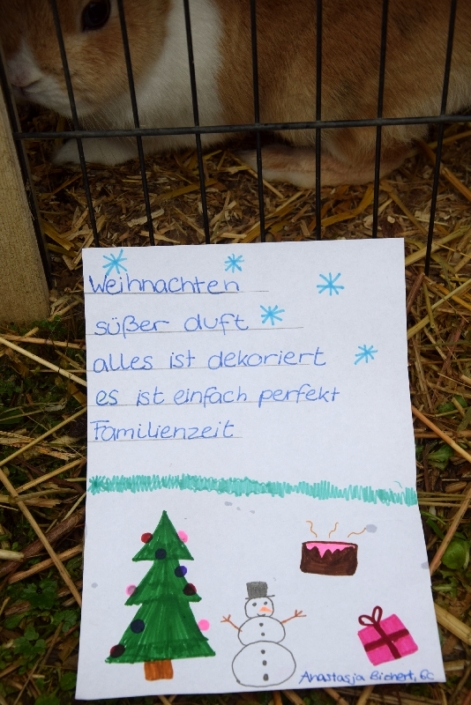 Weihnachten
süßer duft
alles ist dekoriert
es ist einfach perfekt
Familienzeit
Anastasja